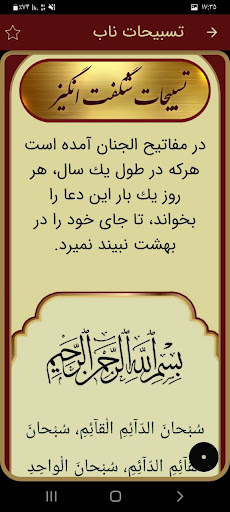 ۱۷:۳۵
٪۷۴
تسبیحات ناب
تسبیحات شگفت انگیز
در مفاتیح الجنان آمده است
هرکه در طول یك سال، هر
روز یك بار این دعا را
بخواند، تا جای خود را در
بهشت نبیند نمیرد.
بِسْمِ اللَّهِ الرَّحْمَنِ الرَّحِيمِ
سُبْحانَ الدّآئِمِ الْقآئِمِ، سُبْحانَ
الْقآئِمِ الدّآئِمِ، سُبْحانَ الْواحِدِ